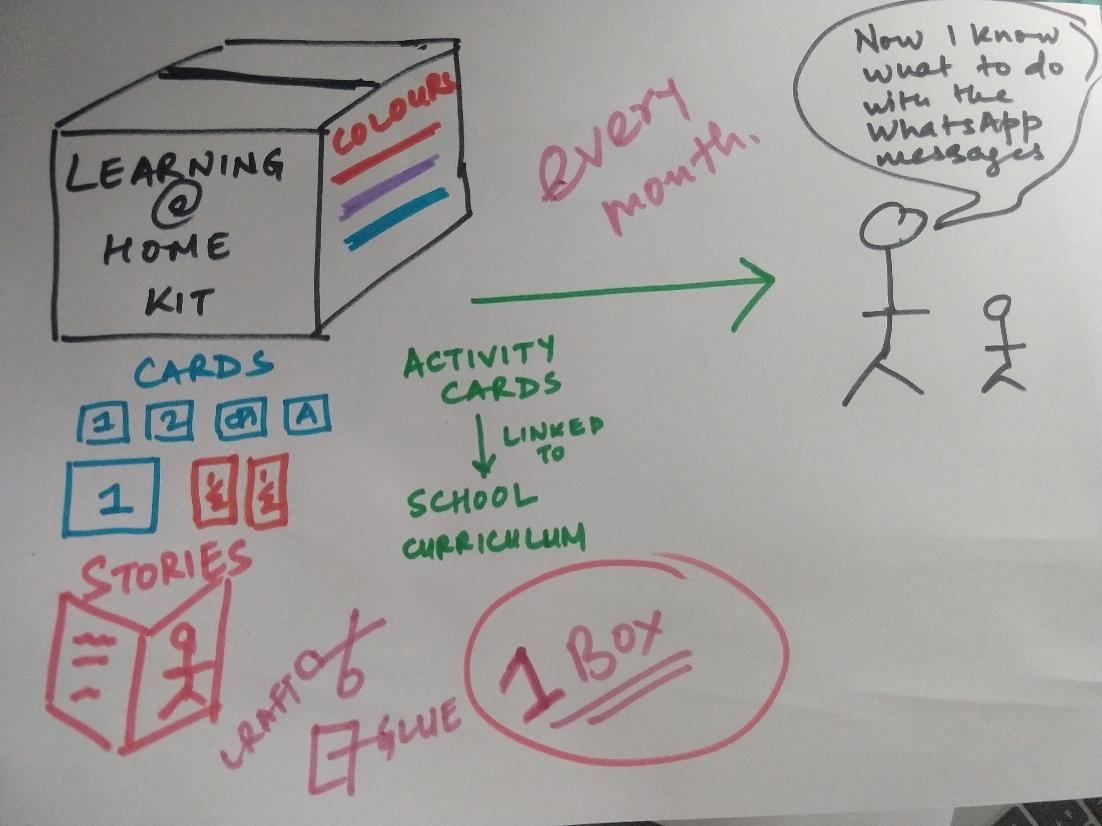 LEARNING
@
HOME
KIT
COLOURS
every
month.
Now I know
what to do
with the
WhatsApp
messages
CARDS
1 2 A
1
ACTIVITY
CARDS
LINKED
TO
SCHOOL
CURRICULUM
STORIES
CRAFT
GLUE
1 BOX